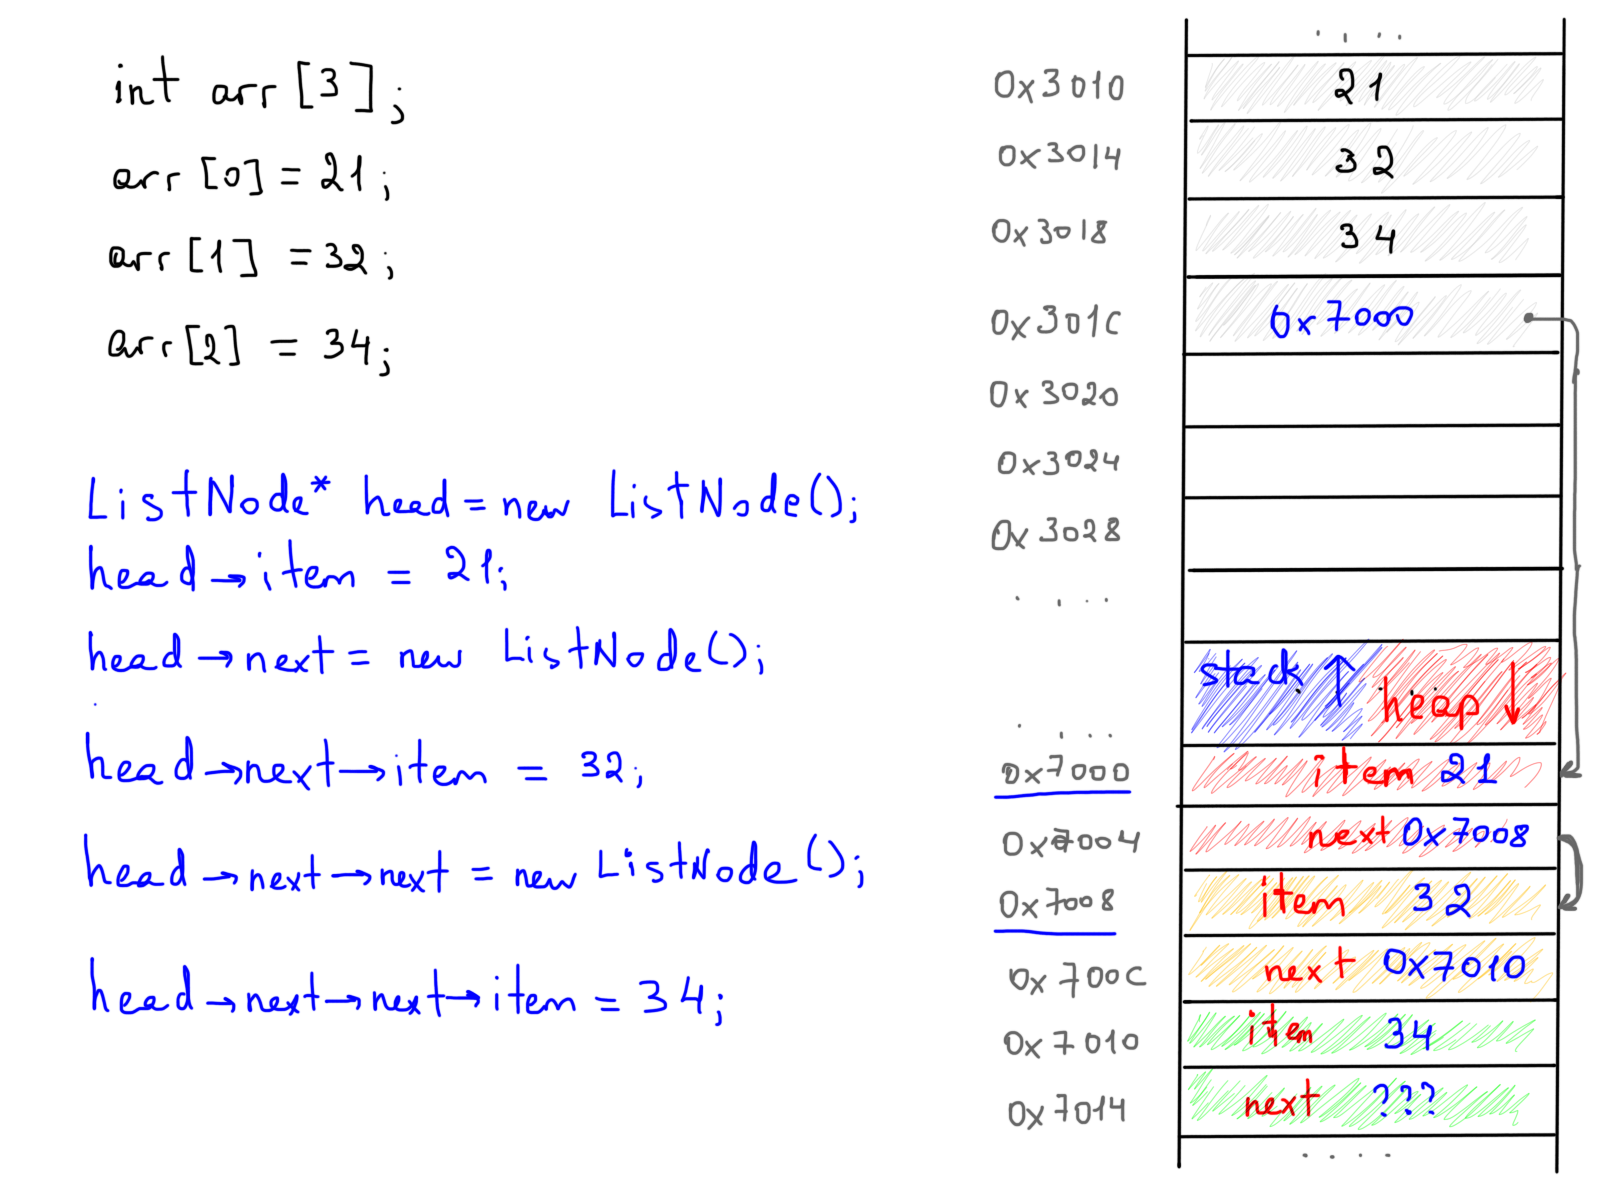 int arr[3];
arr[0] = 21;
arr[1] = 32;
arr[2] = 34;
ListNode* head = new ListNode();
head→item = 21;
head→next = new ListNode();
head→next→item = 32;
head→next→next = new ListNode();
head→next→next→item = 34;
....
0x3010 21
0x3014 32
0x3018 34
0x301C 0x7000
0x3020
0x3024
0x3028
....
stack ↑ heap ↓
....
0x7000 item 21
0x7004 next 0x7008
0x7008 item 32
0x700C next 0x7010
0x7010 item 34
0x7014 next ???
....